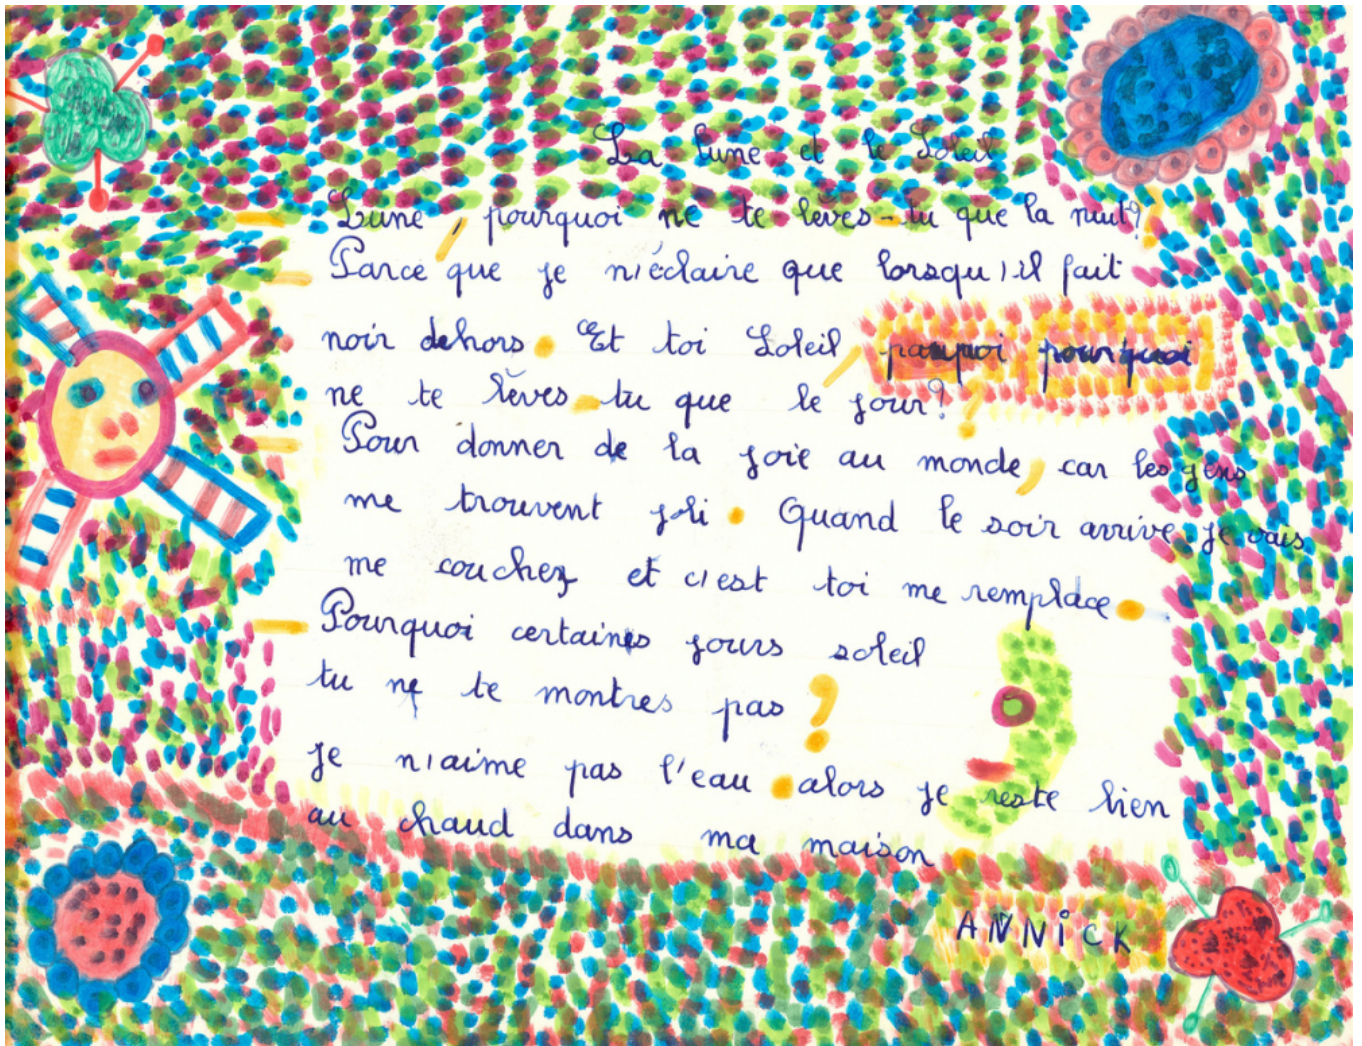 La lune et le Soleil
- Lune, pourquoi ne te lèves-tu que la nuit?
- Parce que je n'éclaire que lorsqu'il fait
noir dehors. Et toi Soleil, pourquoi
ne te lèves-tu que le jour?
- Pour donner de la joie au monde, car les gens
me trouvent joli. Quand le soir arrive je vais
me coucher et c'est toi me remplace.
- Pourquoi certains jours soleil
tu ne te montres pas?
je n'aime pas l'eau. alors je reste bien
au chaud dans ma maison
ANNiCK